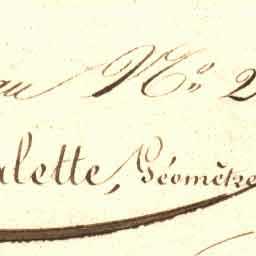 au N.º 2
alette, Géomètre